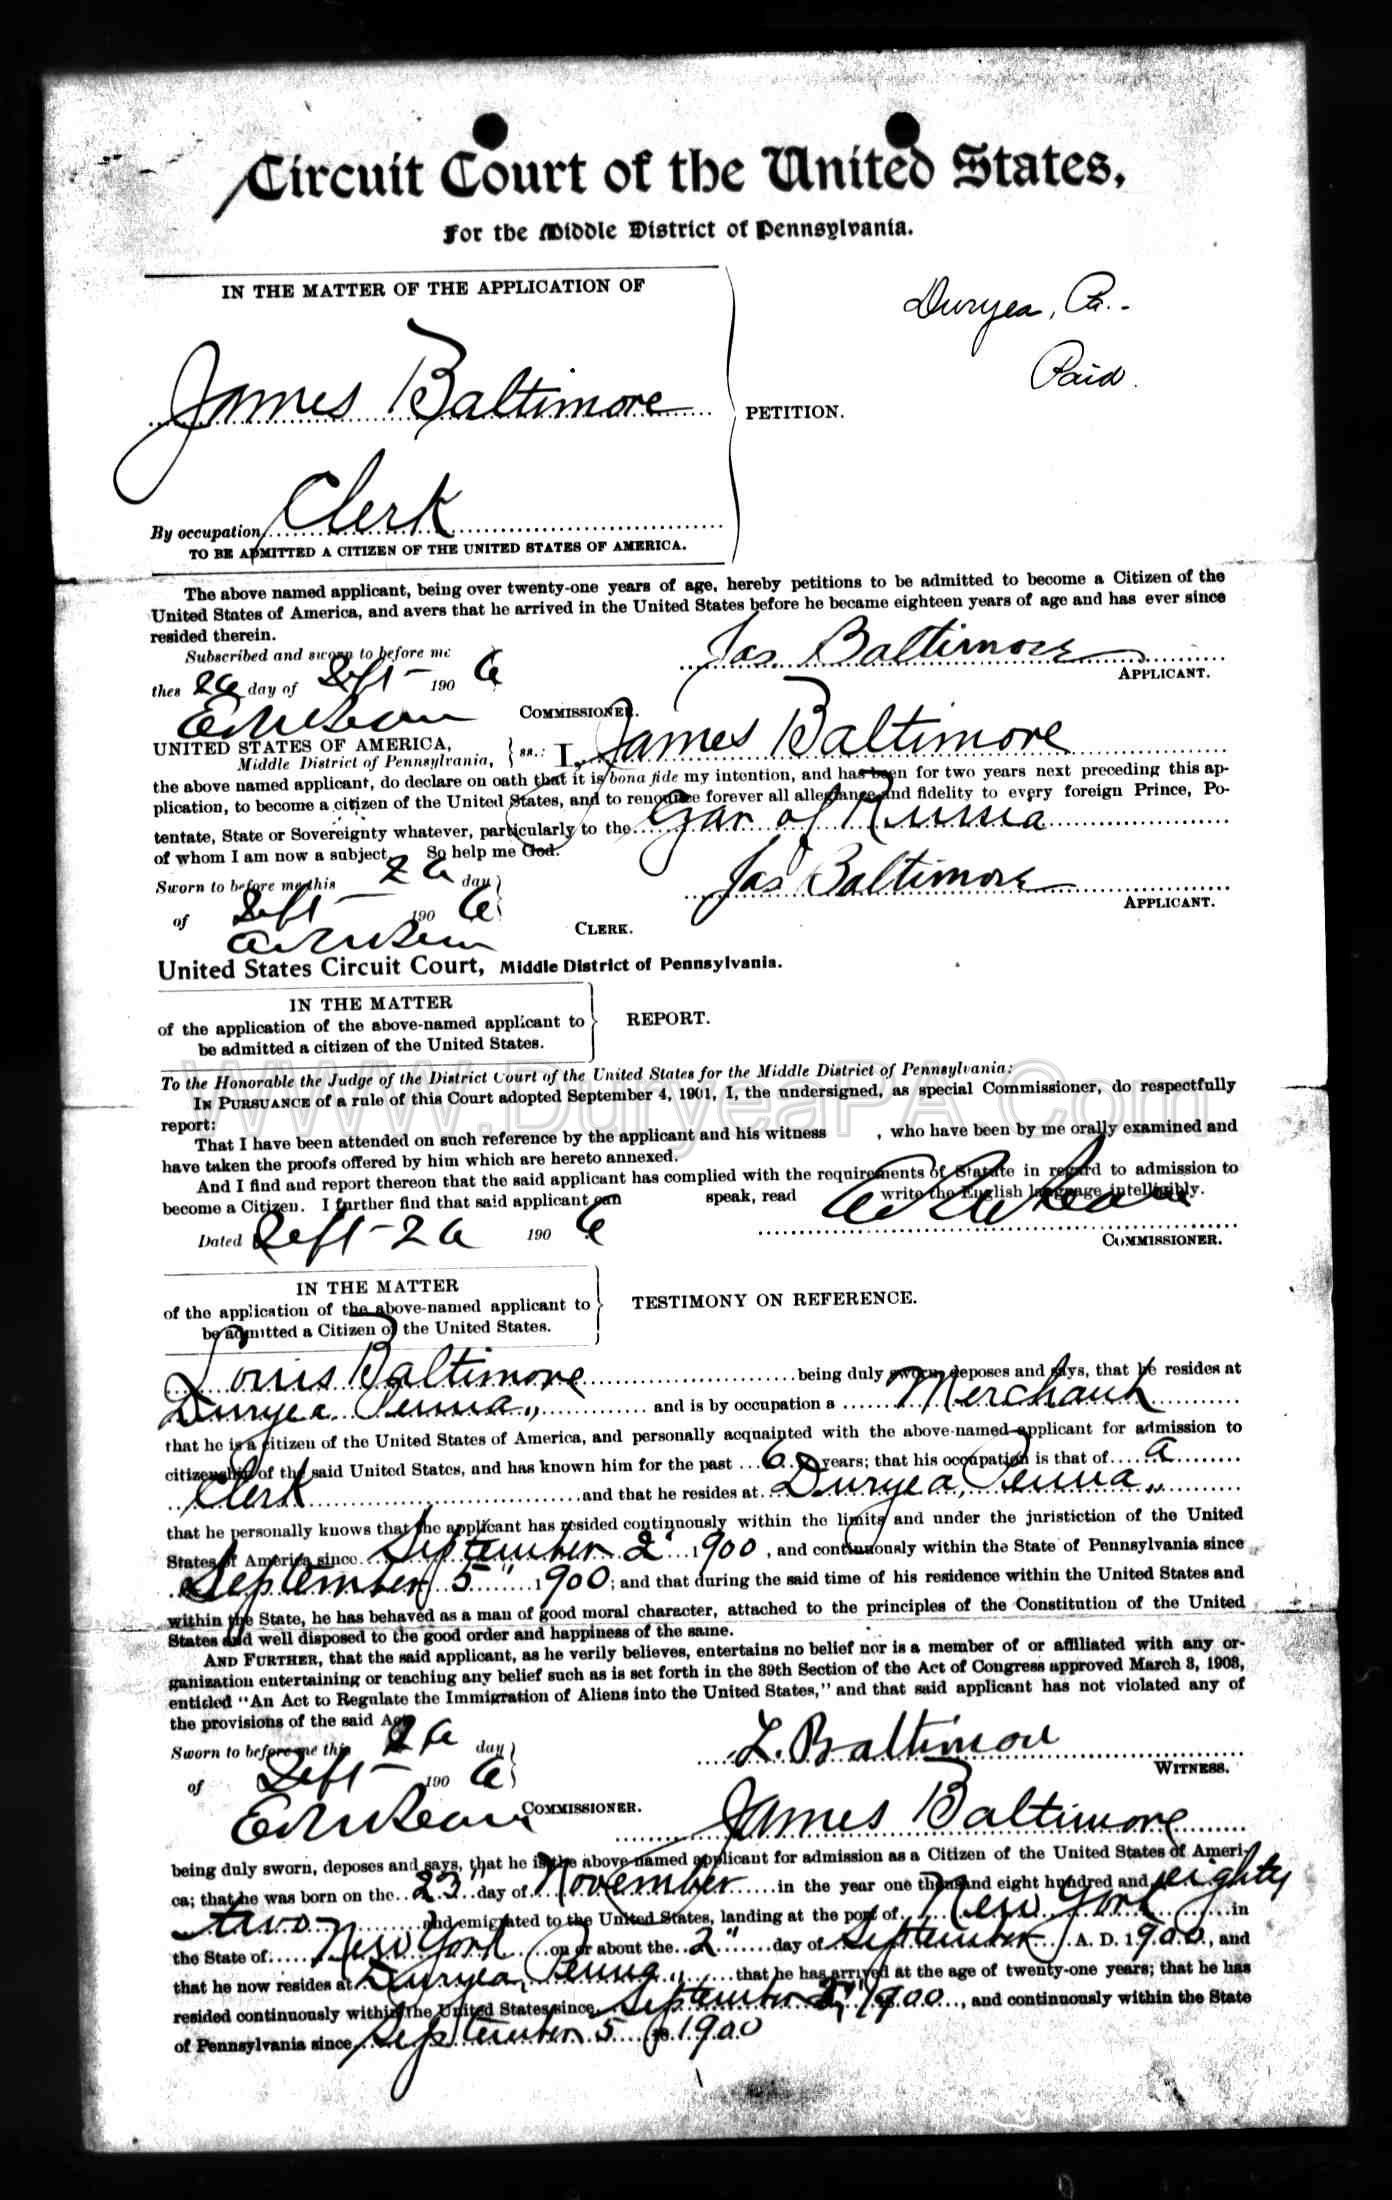 Circuit Court of the United States,
For the Middle District of Pennsylvania.
IN THE MATTER OF THE APPLICATION OF
Duryea, Pa.-
Paid.
James Baltimore
PETITION.
By occupation, Clerk
TO BE ADMITTED A CITIZEN OF THE UNITED STATES OF AMERICA.
The above named applicant, being over twenty-one years of age, hereby petitions to be admitted to become a Citizen of the
United States of America, and avers that he arrived in the United States before he became eighteen years of age and has ever since
resided therein.
Subscribed and sworn to before me
Jas. Baltimore
APPLICANT.
thes 26 day of Sept- 190 6
COMMISSIONER.
UNITED STATES OF AMERICA,
Middle District of Pennsylvania, } ss.: I, James Baltimore
the above named applicant, do declare on oath that it is bona fide my intention, and has been for two years next preceding this ap-
plication, to become a citizen of the United States, and to renounce forever all allegiance and fidelity to every foreign Prince, Po-
tentate, State or Sovereignty whatever, particularly to the Czar of Russia
of whom I am now a subject. So help me God.
Sworn to before me this 26 day
of Sept- 190 6
Jas Baltimore
APPLICANT.
CLERK.
United States Circuit Court, Middle District of Pennsylvania.
IN THE MATTER
of the application of the above-named applicant to
be admitted a citizen of the United States.
REPORT.
To the Honorable the Judge of the District Court of the United States for the Middle District of Pennsylvania:
WWW.DuryeaPA.Com
IN PURSUANCE of a rule of this Court adopted September 4, 1901, I, the undersigned, as special Commissioner, do respectfully
report:
That I have been attended on such reference by the applicant and his witness , who have been by me orally examined and
have taken the proofs offered by him which are hereto annexed.
And I find and report thereon that the said applicant has complied with the requirements of Statute in regard to admission to
become a Citizen. I further find that said applicant can speak, read write the English language intelligibly.
Dated Sept- 26 190 6
COMMISSIONER.
IN THE MATTER
of the application of the above-named applicant to
be admitted a Citizen of the United States.
TESTIMONY ON REFERENCE.
Louis Baltimore being duly sworn, deposes and says, that he resides at
Duryea Penna., and is by occupation a Merchant
that he is a citizen of the United States of America, and personally acquainted with the above-named applicant for admission to
citizenship of the said United States, and has known him for the past 6 years; that his occupation is that of a
Clerk and that he resides at Duryea, Penna.,
that he personally knows that the applicant has resided continuously within the limits and under the juristiction of the United
States of America since September 2" 1900, and continuously within the State of Pennsylvania since
September 5" 1900; and that during the said time of his residence within the United States and
within the State, he has behaved as a man of good moral character, attached to the principles of the Constitution of the United
States and well disposed to the good order and happiness of the same.
AND FURTHER, that the said applicant, as he verily believes, entertains no belief nor is a member of or affiliated with any or-
ganization entertaining or teaching any belief such as is set forth in the 39th Section of the Act of Congress approved March 3, 1903,
entitled "An Act to Regulate the Immigration of Aliens into the United States," and that said applicant has not violated any of
the provisions of the said Act.
Sworn to before me this 26 day
of Sept- 190 6
L. Baltimore
WITNESS.
COMMISSIONER.
James Baltimore
being duly sworn, deposes and says, that he is the above-named applicant for admission as a Citizen of the United States of Ameri-
ca; that he was born on the 23" day of November in the year one thousand eight hundred and eighty
two- and emigrated to the United States, landing at the port of New York in
the State of New York on or about the 2" day of September A. D. 1900, and
that he now resides at Duryea, Penna., that he has arrived at the age of twenty-one years; that he has
resided continuously within the United States since September 2" 1900, and continuously within the State
of Pennsylvania since September 5 1900